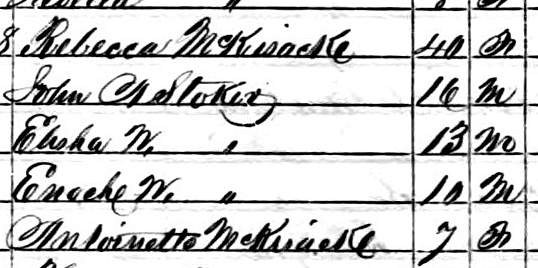 Rebecca McKisacke 40 F
John A Stoker 16 M
Elisha W. " 13 M
Enoche W. " 10 M
Antoinette McKisacke 7 F